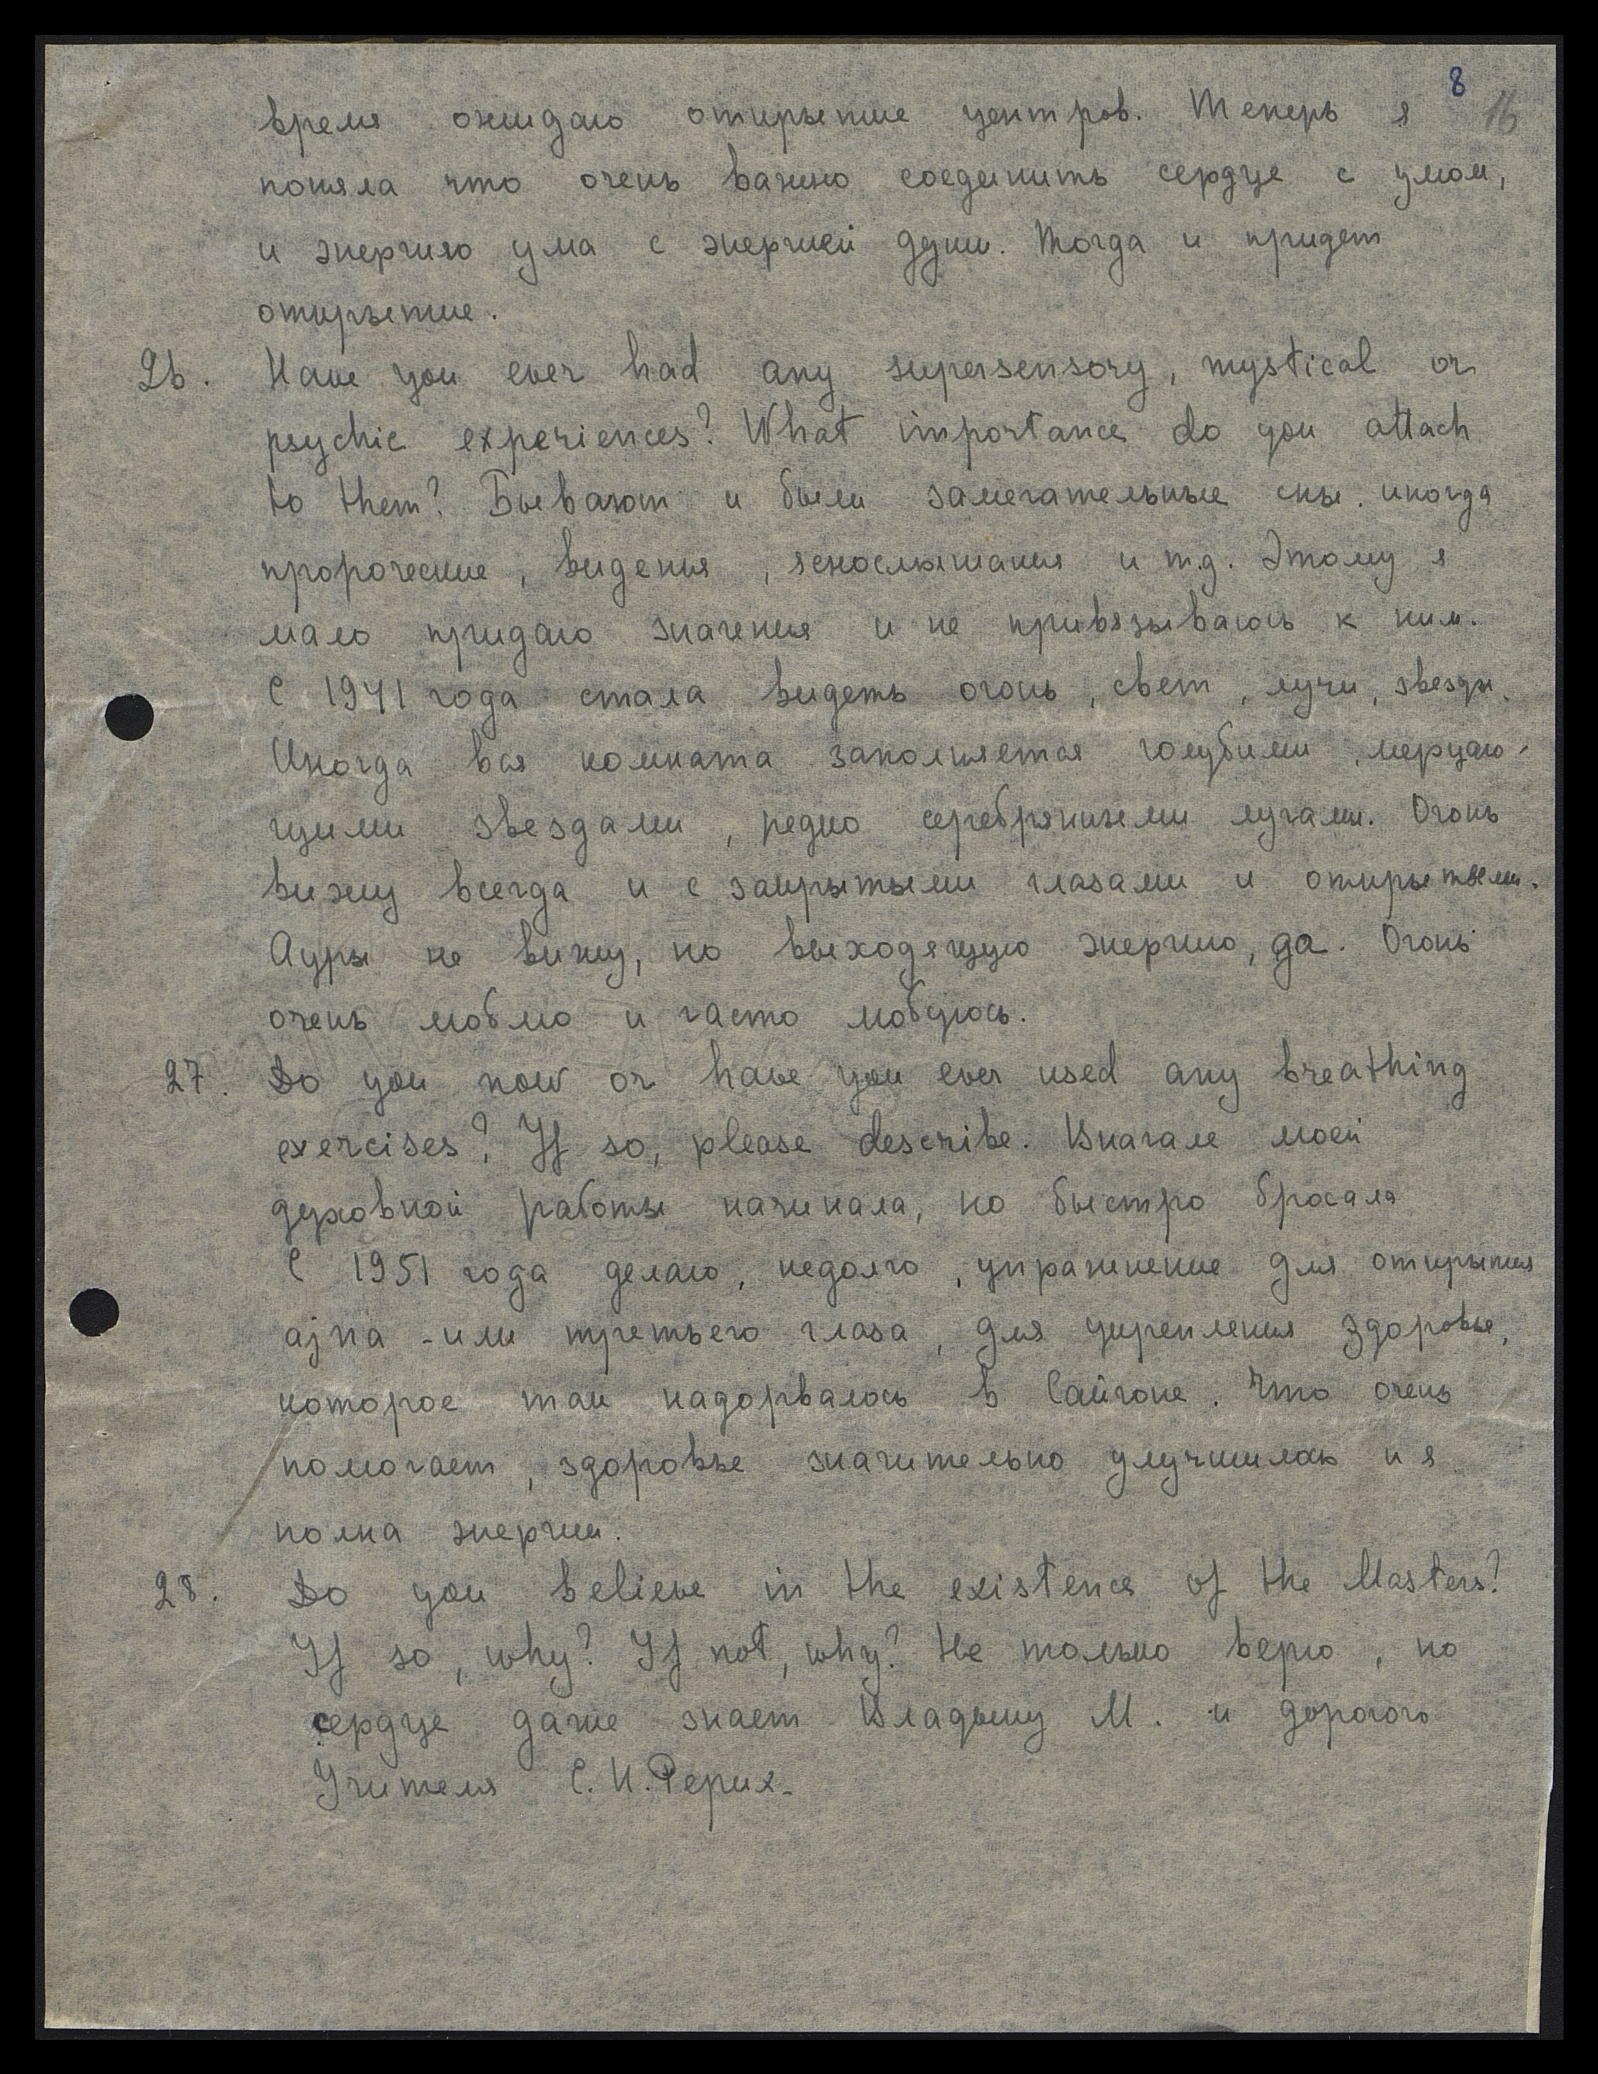 8
16
время ожидаю открытие центров. Теперь я
поняла что очень важно соединить сердце с умом,
и энергию ума с энергией души. Тогда и придет
открытие.
26. Have you ever had any supersensory, mystical or
psychic experiences? What importance do you attach
to them? Бывают и были замечательные сны. иногда
пророческие, видения, яснослышания и т.д. Этому я
мало придаю значения и не привязываюсь к ним.
С 1941 года стала видеть огонь, свет, лучи, звезды.
Иногда вся комната заполняется голубыми, мерцаю-
щими звездами, редко серебряными лучами. Огонь
вижу всегда и с закрытыми глазами и открытыми.
Ауры не вижу, но выходящую энергию, да. Огонь
очень люблю и часто любуюсь.
27. Do you now or have you ever used any breathing
exercises? If so, please describe. Вначале моей
духовной работы начинала, но быстро бросала
С 1951 года делаю, недолго, упражнение для открытия
ajna - или третьего глаза, для укрепления здоровье,
которое так надорвалось в Сайгоне. Что очень
помогает, здоровье значительно улучшилось и я
полна энергии.
28. Do you believe in the existence of the Masters?
If so, why? If not, why? Не только верю, но
сердце даже знает Владыку М. и дорогого
Учителя С. Н. Рерих.